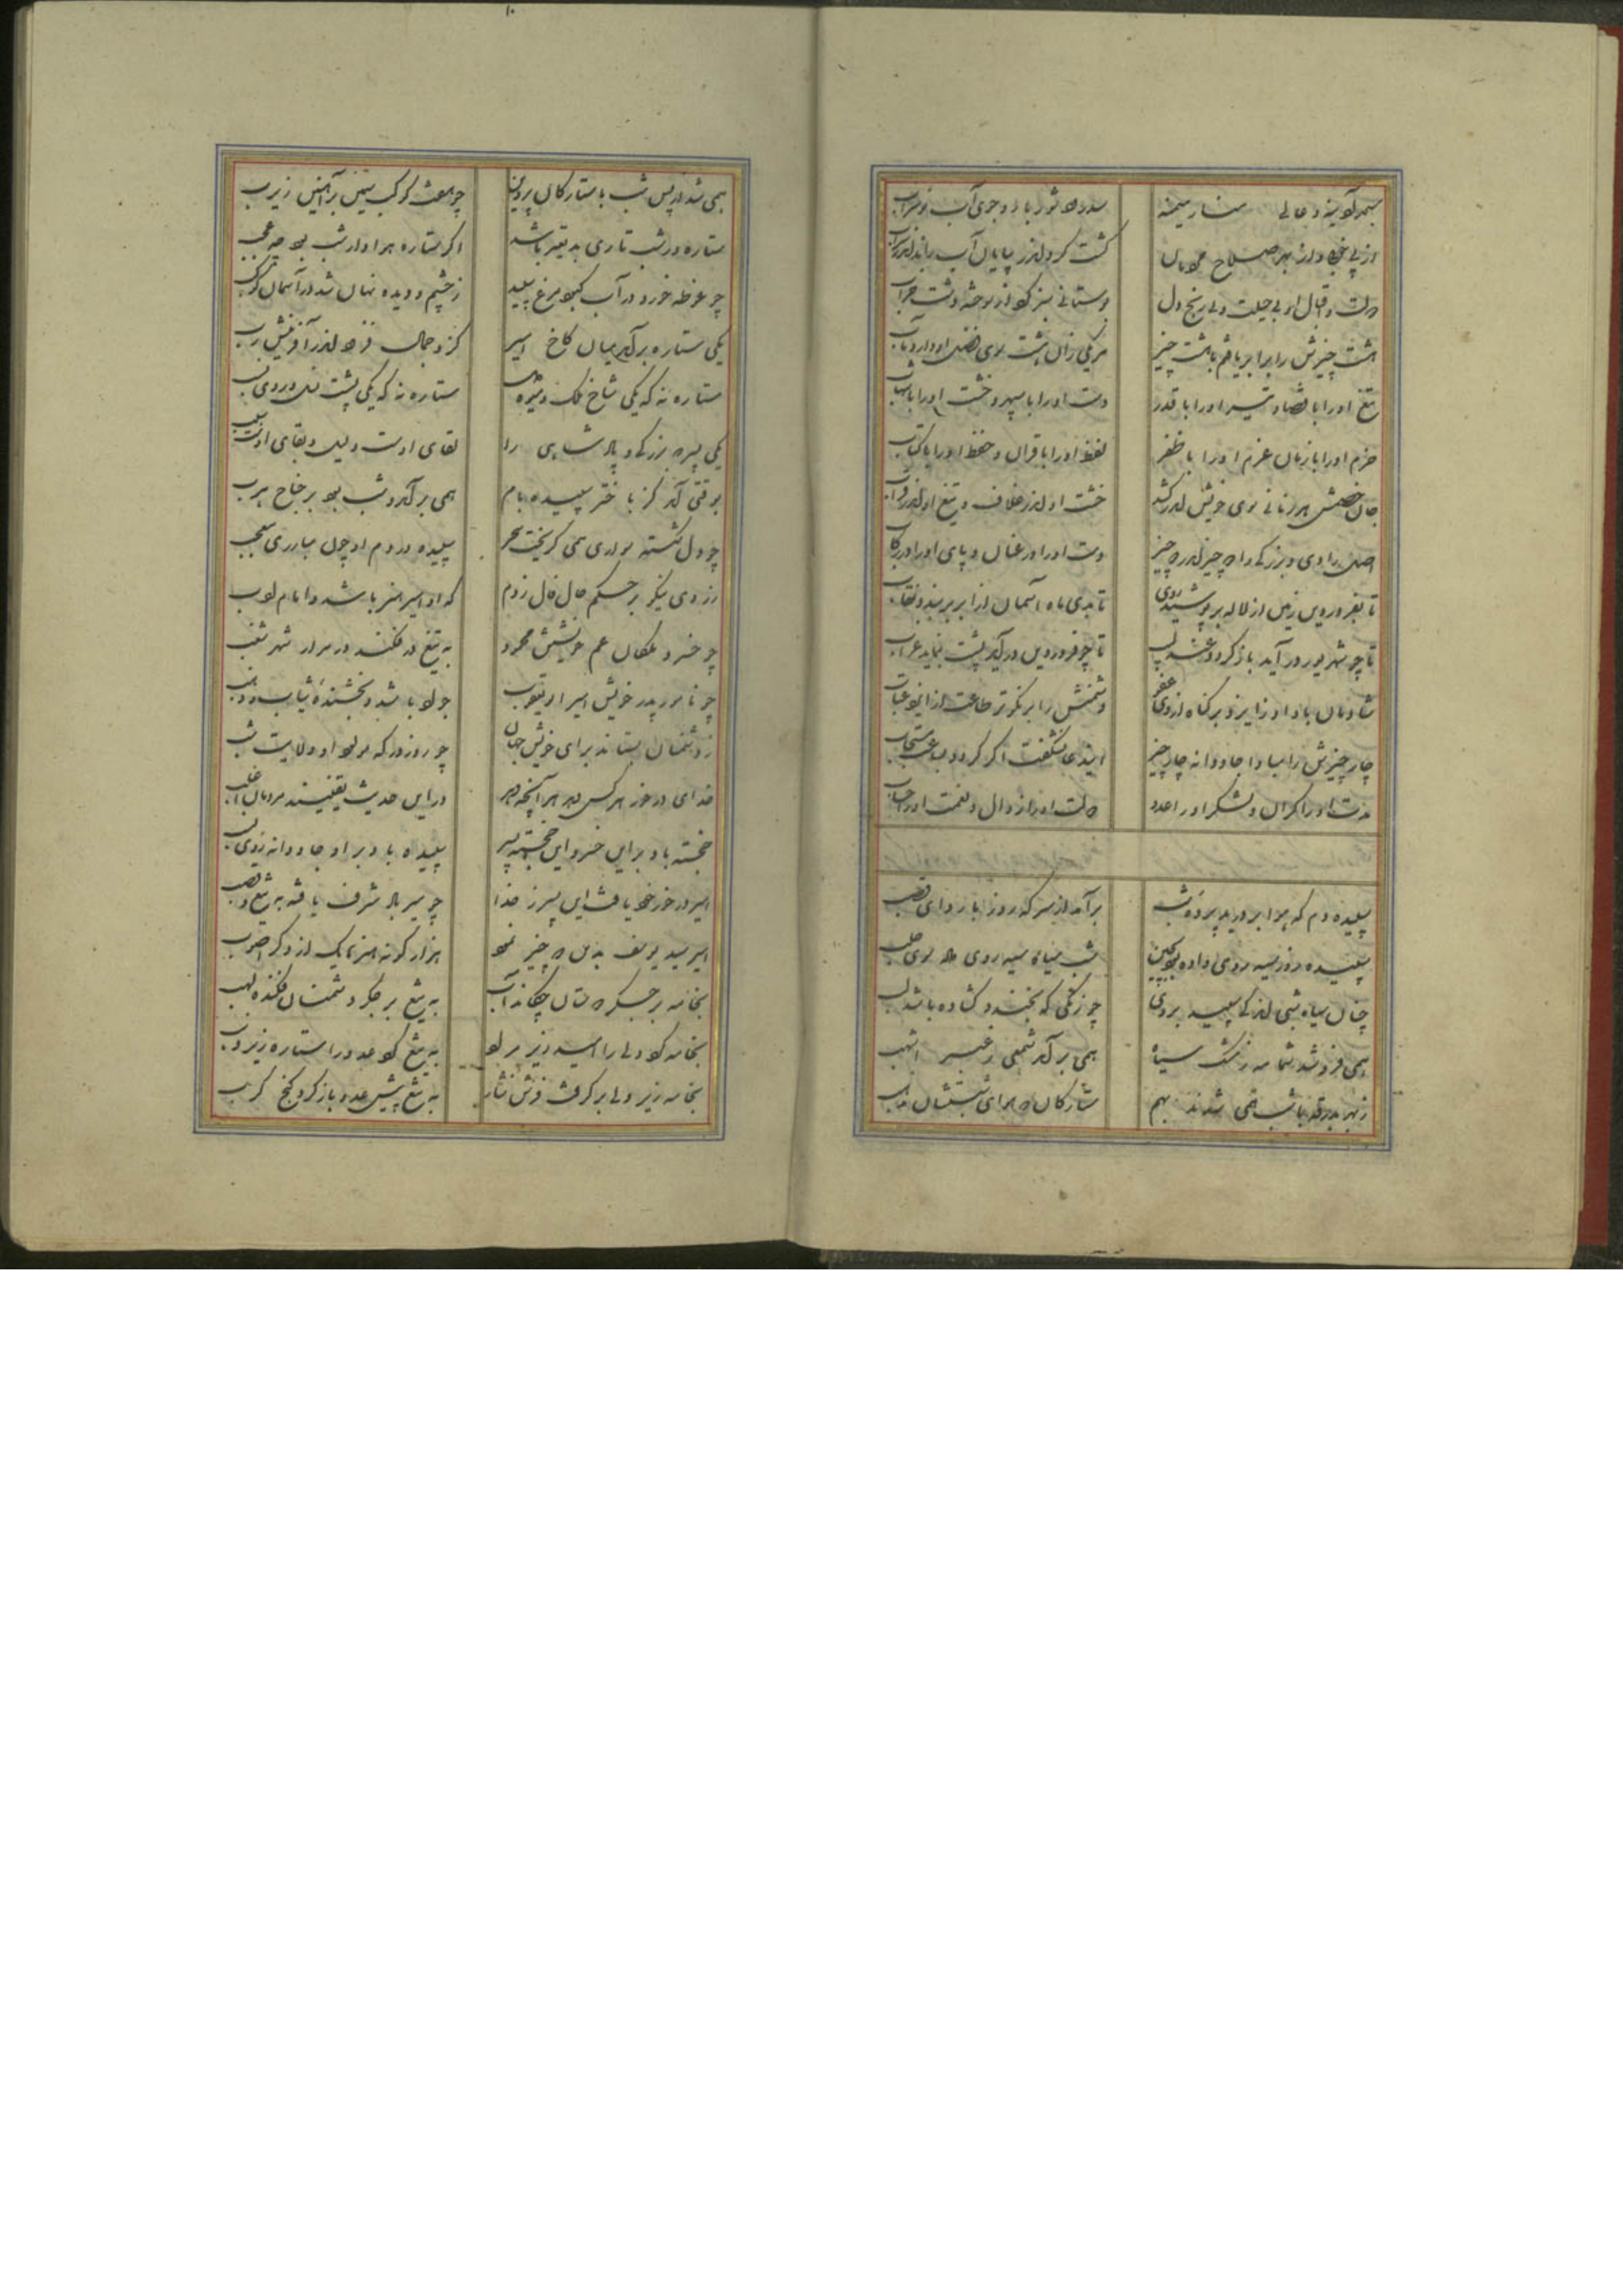 از پی خوبی و از بهر صلاح مردمان
گشت گرد اندر بیابان آب راند اندر سراب
دولت و اقبال او بی حیلت و بی رنج دل
بوستانی سبز کرد از دشت خراب
هشت چیزش را برابر یافتم با هشت چیز
هر یکی زان هشت سوی فضل او دارد مآب
تیغ او را با قضا و تیر او را با قدر
دست او را با سپهر و خشت او را با شهاب
حزم او را با زمان عزم او را با ظفر
لفظ او را با قران و حفظ او را با کتاب
جان خصمش هر زمانی سوی خویش اندر کشد
خشت او اندر غلاف و تیغ او اندر قراب
اصل رادی و بزرگی را دو چیز اندر دو چیز
دست او را در عنان و پای او را در رکاب
تا بفروردین زمین از لاله بر پوشد ردی
تا بدی ماه آسمان از ابر بر بندد نقاب
تا چو شهریور در آید باز گردد عندلیب
تا چو فروردین در آید پشت بنماید غراب
شادمان باد او ز ایزد بر گناه از وی عفو
دشمنش را بر نکوتر طاعت از ایزد عقاب
چار چیزش را مبادا جاودانه چار چیز
مدت او را کران و لشکر او را عدد
دولت او را زوال و نعمت او را حساب
سپیده دم که هوا بر درید پرده شب
بر آمد از سر که روز با ردای قصب
سپیده روز سپید روی داده سوی
شب سیاه سیه روی داد سوی
چنان سیاه شبی اندکی سپید بروی
چو زنگی که بخندد گشاده باشد لب
همی فرو شد شمامه ز مشک سیاه
همی بر آمد شمعی ز عنبر اشهب
ز بهر بدرقه با شب همی شدند بهم
ستارگان
همی شد از پس شب با ستارگان پروین
چو هفت کوکب سیمین بر آهنین زبزب
ستاره در شب تاری پدیدتر باشد
اگر ستاره هوادار شب بود چه عجب
چو غوطه خورد در آب کبود مرغ سپید
ز چشم و دیده نهان شد در آسمان کوکب
یکی ستاره بر آمد میان کاخ امیر
کزو جمال فزود اندر آفرینش رب
ستاره نه که یکی شاخ ملک
ستاره نه که یکی پشت
یکی پسر که بزرگی و پادشاهی را
لقای اوست دلیل و بقای اوست سبب
بوقتی آمد کز باختر سپیده بام
همی بر آمد و شب بود بر جناح هرب
چو دل شکسته سواری همی گریخت سحر
سپیده در دم او چون مبارزی
ز روی نیکو بر حکم حال فال زدم
که او امیر هنر باشد و امام ادب
چو خسرو ملکان عم خویشتن محمود
به تیغ در فکند در سران شهر شغب
چو نامور پدر خویش امیر ابو یعقوب
جواد باشد و بخشنده ثیاب و ذهب
ز دشمنان بستاند برای خویش جهان
چو روز در که
خدای در خور هر کس دهد هر آنچه دهد
در این حدیث یقینند مردمان اغلب
خجسته باد بر این خسرو این خجسته پسر
سپیده باد بر او جاودانه روی
امیر در خور خود یافت این پسر ز خدا
چو میر باد شرف یافته به تیغ و قصب
امیر سید یوسف بدین دو چیز نمود
هزار گونه هنر هر یک از دگر اصوب
بخامه بر جگر دوستان چکانده آب
به تیغ بر جگر دشمنان فکنده لهب
بخامه کرد ولی را امید زیر مراد
به تیغ کرد عدو را ستاره زیر ذنب
بخامه زیر ولی بر گرفت فرش نشاط
به تیغ پیش عدو باز کرد گنج کرب